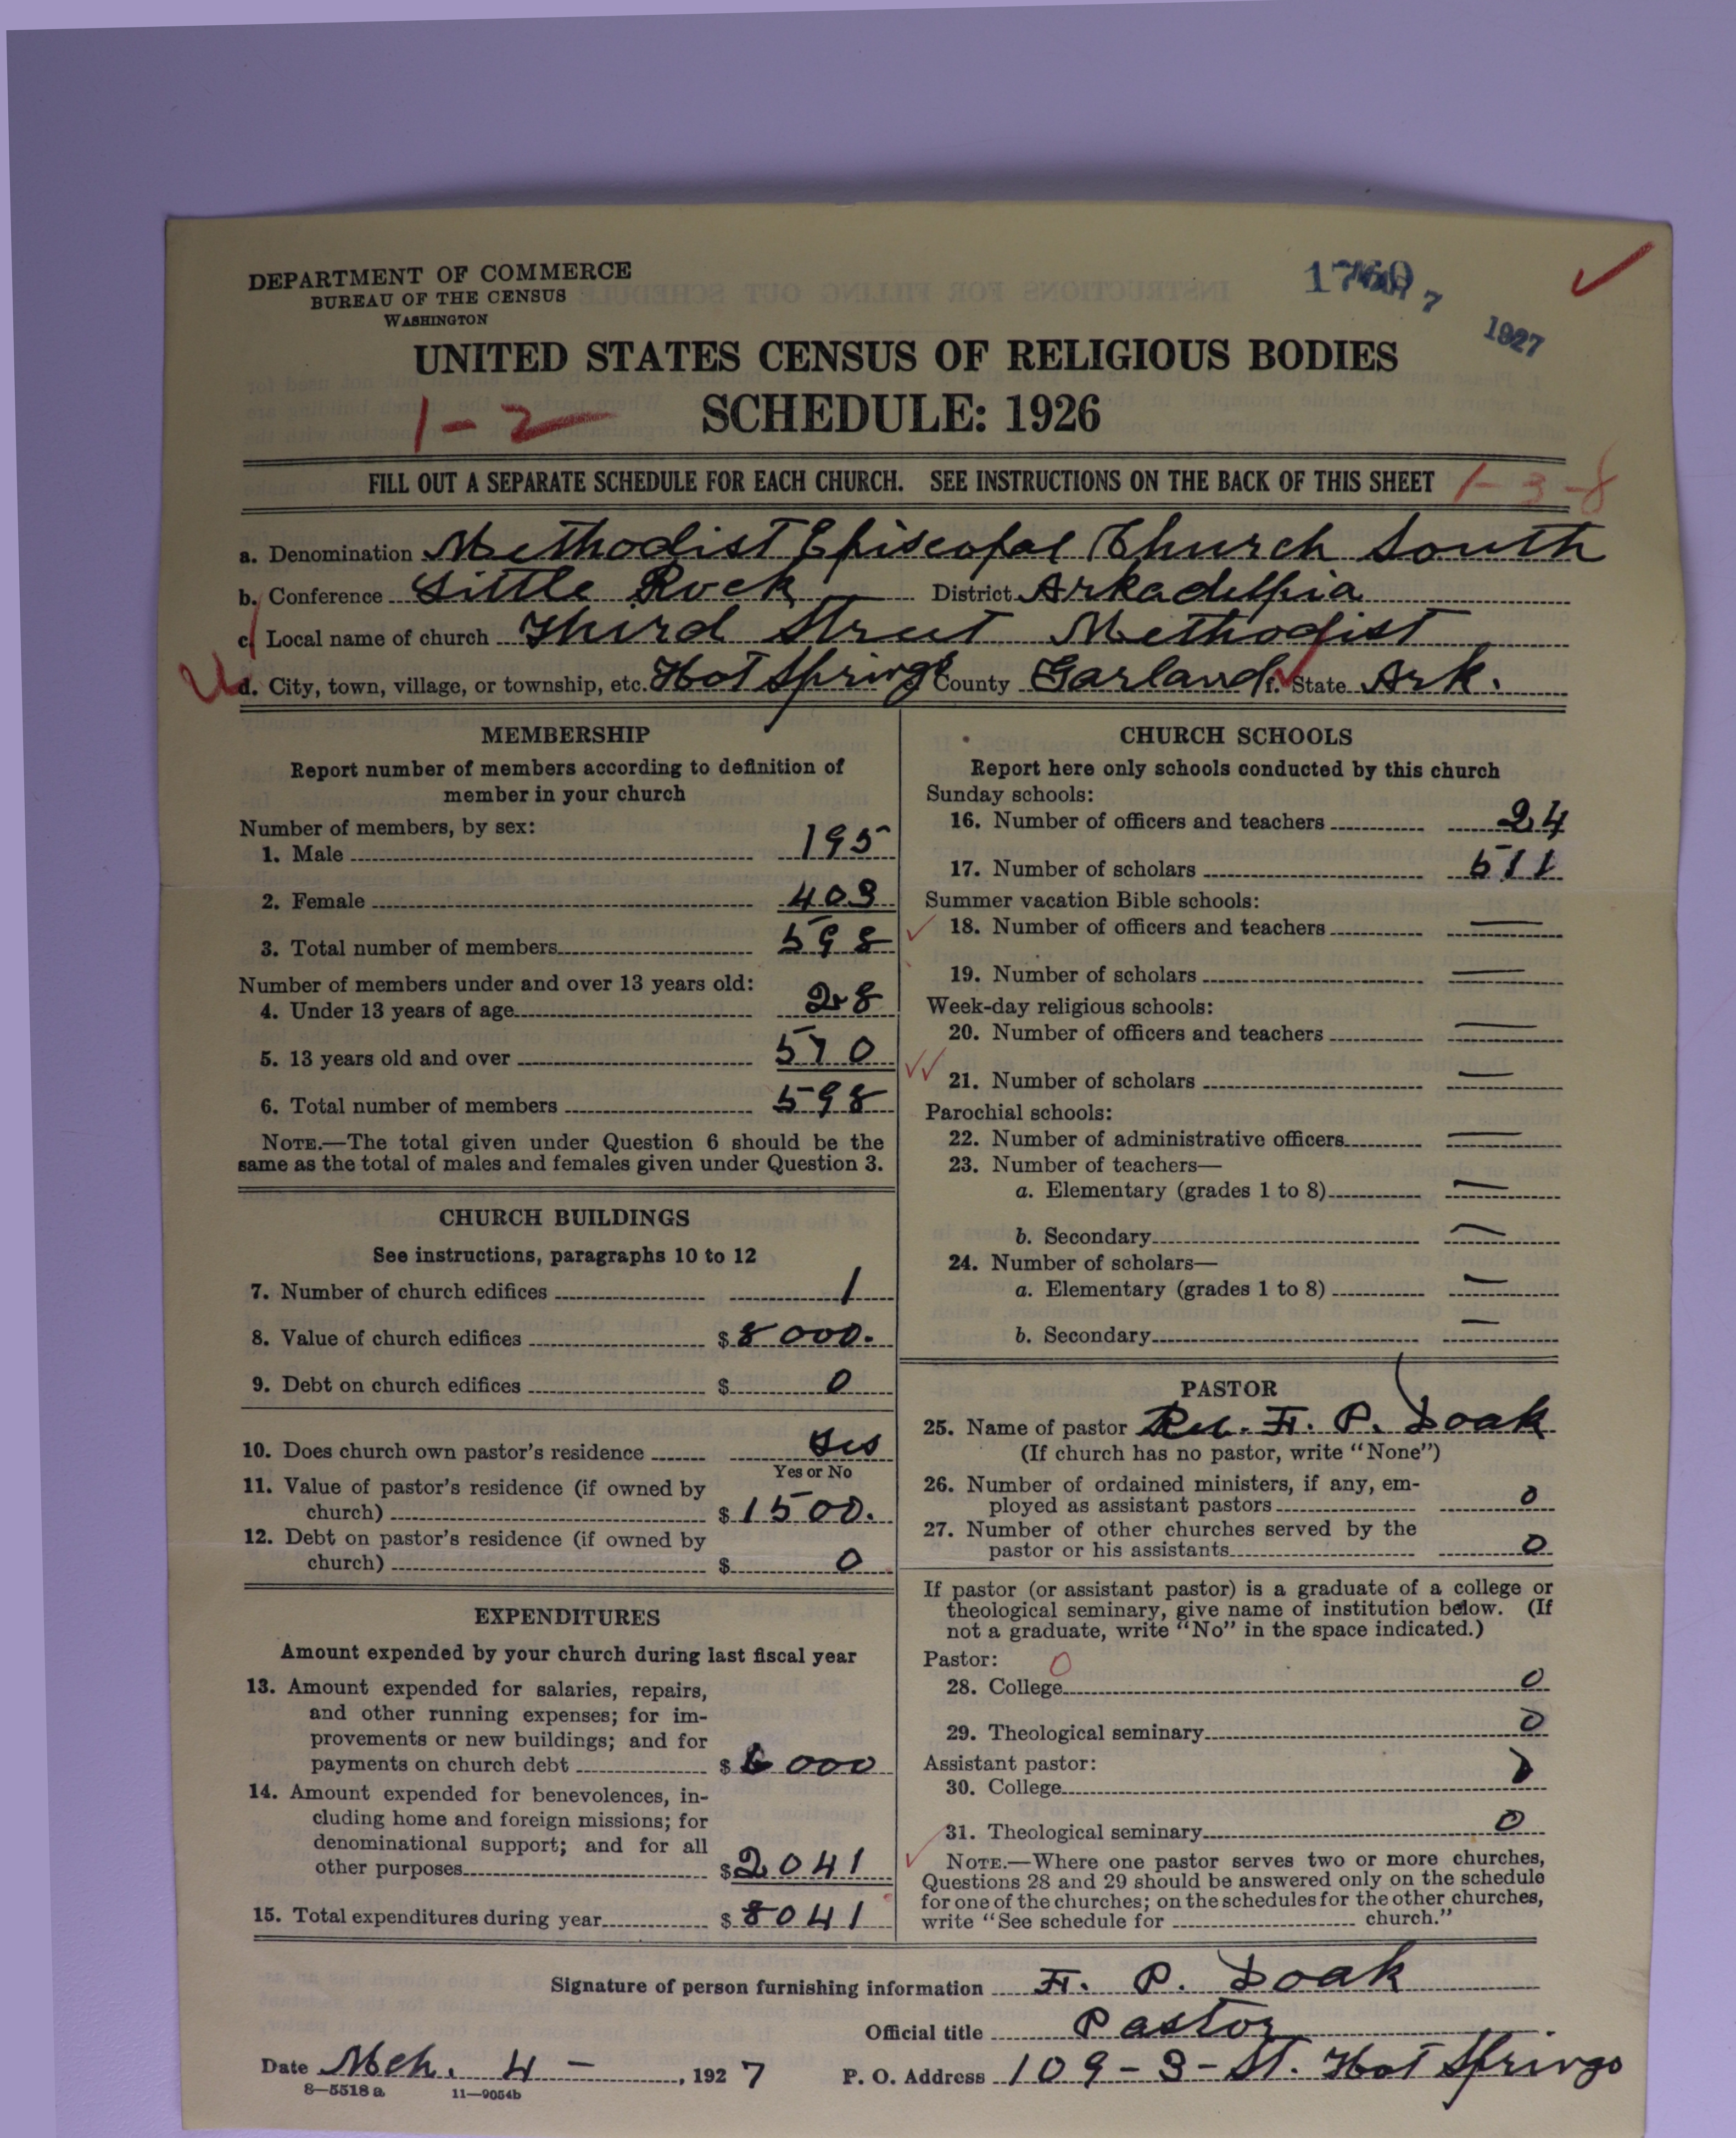 DEPARTMENT OF COMMERCE
BUREAU OF THE CENSUS
WASHINGTON
7
1927
UNITED STATES CENSUS OF RELIGIOUS BODIES
1-2
SCHEDULE: 1926
FILL OUT A SEPARATE SCHEDULE FOR EACH CHURCH. SEE INSTRUCTIONS ON THE BACK OF THIS SHEET 1-3-8
a. Denomination Methodist Episcopal Church South
b. Conference Little Rock District Arkadelphia
c. Local name of church Third Street Methodist
d. City, town, village, or township, etc. Hot Springs County Garland f. State Ark.
MEMBERSHIP
Report number of members according to definition of
member in your church
Number of members, by sex:
1. Male 195
2. Female 403
3. Total number of members 598
Number of members under and over 13 years old:
4. Under 13 years of age 28
5. 13 years old and over 570
6. Total number of members 598
NOTE.—The total given under Question 6 should be the
same as the total of males and females given under Question 3.
CHURCH BUILDINGS
See instructions, paragraphs 10 to 12
7. Number of church edifices 1
8. Value of church edifices $8000.
9. Debt on church edifices $ 0
10. Does church own pastor's residence Yes
Yes or No
11. Value of pastor's residence (if owned by
church) $1500.
12. Debt on pastor's residence (if owned by
church) $ 0
EXPENDITURES
Amount expended by your church during last fiscal year
13. Amount expended for salaries, repairs,
and other running expenses; for im-
provements or new buildings; and for
payments on church debt $6000
14. Amount expended for benevolences, in-
cluding home and foreign missions; for
denominational support; and for all
other purposes $2041
15. Total expenditures during year $8041
CHURCH SCHOOLS
Report here only schools conducted by this church
Sunday schools:
16. Number of officers and teachers 24
17. Number of scholars 511
Summer vacation Bible schools:
18. Number of officers and teachers —
19. Number of scholars —
Week-day religious schools:
20. Number of officers and teachers —
21. Number of scholars —
Parochial schools:
22. Number of administrative officers —
23. Number of teachers—
a. Elementary (grades 1 to 8) —
b. Secondary —
24. Number of scholars—
a. Elementary (grades 1 to 8) —
b. Secondary —
PASTOR
25. Name of pastor Rev. F. P. Doak
(If church has no pastor, write "None")
26. Number of ordained ministers, if any, em-
ployed as assistant pastors 0
27. Number of other churches served by the
pastor or his assistants 0
If pastor (or assistant pastor) is a graduate of a college or
theological seminary, give name of institution below. (If
not a graduate, write "No" in the space indicated.)
Pastor: 0
28. College 0
29. Theological seminary 0
Assistant pastor:
30. College 0
31. Theological seminary 0
NOTE.—Where one pastor serves two or more churches,
Questions 28 and 29 should be answered only on the schedule
for one of the churches; on the schedules for the other churches,
write "See schedule for church."
Signature of person furnishing information F. P. Doak
Official title Pastor
Date Mch. 4 -, 1927 P. O. Address 109-3-St. Hot Springs
8—5518 a 11—9054b